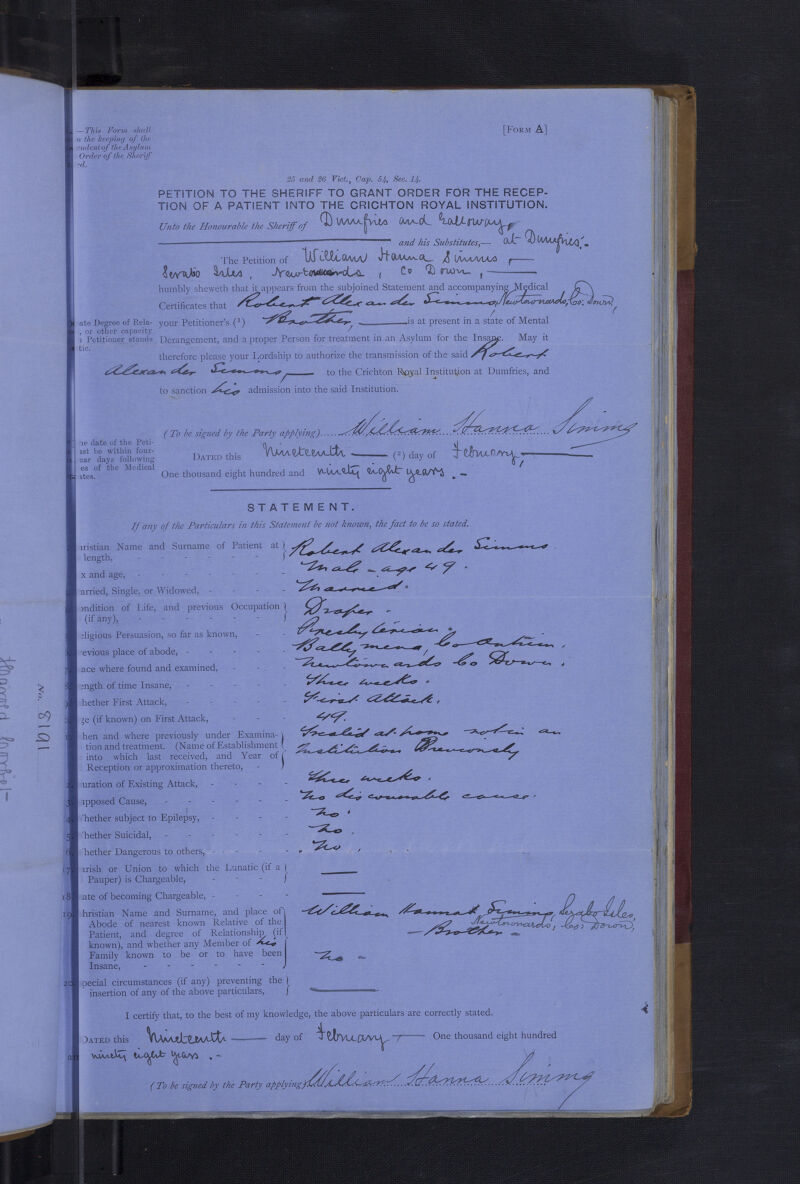 —This Form shall
the keeping of the
endent of the Asylum
Order of the Sheriff
ed.
[FORM A]
25 and 26 Vict., Cap. 54, Sec. 14.
PETITION TO THE SHERIFF TO GRANT ORDER FOR THE RECEP-
TION OF A PATIENT INTO THE CRICHTON ROYAL INSTITUTION.
Unto the Honourable the Sheriff of Dumfries and Galloway,
and his Substitutes,— at Dumfries.-
The Petition of William Hanna Simms,
Isles, Newtownards, Co Down,
humbly sheweth that it appears from the subjoined Statement and accompanying Medical
Certificates that Robert Alexander Simms, Newtownards, Co: Down,
ate Degree of Rela-
, or other capacity
Petitioner stands
tic.
your Petitioner's (¹) Brother, is at present in a state of Mental
Derangement, and a proper Person for treatment in an Asylum for the Insane. May it
therefore please your Lordship to authorize the transmission of the said Robert
Alexander Simms, to the Crichton Royal Institution at Dumfries, and
to sanction his admission into the said Institution.
(To be signed by the Party applying) William Hanna Simms
he date of the Peti-
ust be within four-
ear days following
es of the Medical
ates.
DATED this Nineteenth (²) day of February,
One thousand eight hundred and ninety eight years. -
STATEMENT.
If any of the Particulars in this Statement be not known, the fact to be so stated.
ristian Name and Surname of Patient at
length, Robert Alexander Simms
x and age, - Male - age 49.
arried, Single, or Widowed, - Married.
ondition of Life, and previous Occupation
(if any), Draper.
eligious Persuasion, so far as known, - Presbyterian.
evious place of abode, - Ballymena, Co Antrim.
ace where found and examined, - Newtownards Co Down.
ength of time Insane, - Three weeks.
hether First Attack, - First Attack.
ge (if known) on First Attack, - 49.
hen and where previously under Examina-
tion and treatment. (Name of Establishment
into which last received, and Year of
Reception or approximation thereto, -
Treated at home not in an
Institution Previously
uration of Existing Attack, - Three weeks.
upposed Cause, - No discoverable cause.
4. Whether subject to Epilepsy, - No.
5. Whether Suicidal, - No.
6. Whether Dangerous to others, - No.
17. arish or Union to which the Lunatic (if a
Pauper) is Chargeable, -
18. ate of becoming Chargeable, -
19. hristian Name and Surname, and place of
Abode of nearest known Relative of the
Patient, and degree of Relationship (if
known), and whether any Member of his
Family known to be or to have been
Insane, -
William Hannah Simms, Isles,
Newtownards, Co: Down,
- Brother -
No -
20. pecial circumstances (if any) preventing the
insertion of any of the above particulars,
I certify that, to the best of my knowledge, the above particulars are correctly stated.
DATED this Nineteenth day of February One thousand eight hundred
an ninety eight years. -
(To be signed by the Party applying) William Hanna Simms
No. 1018